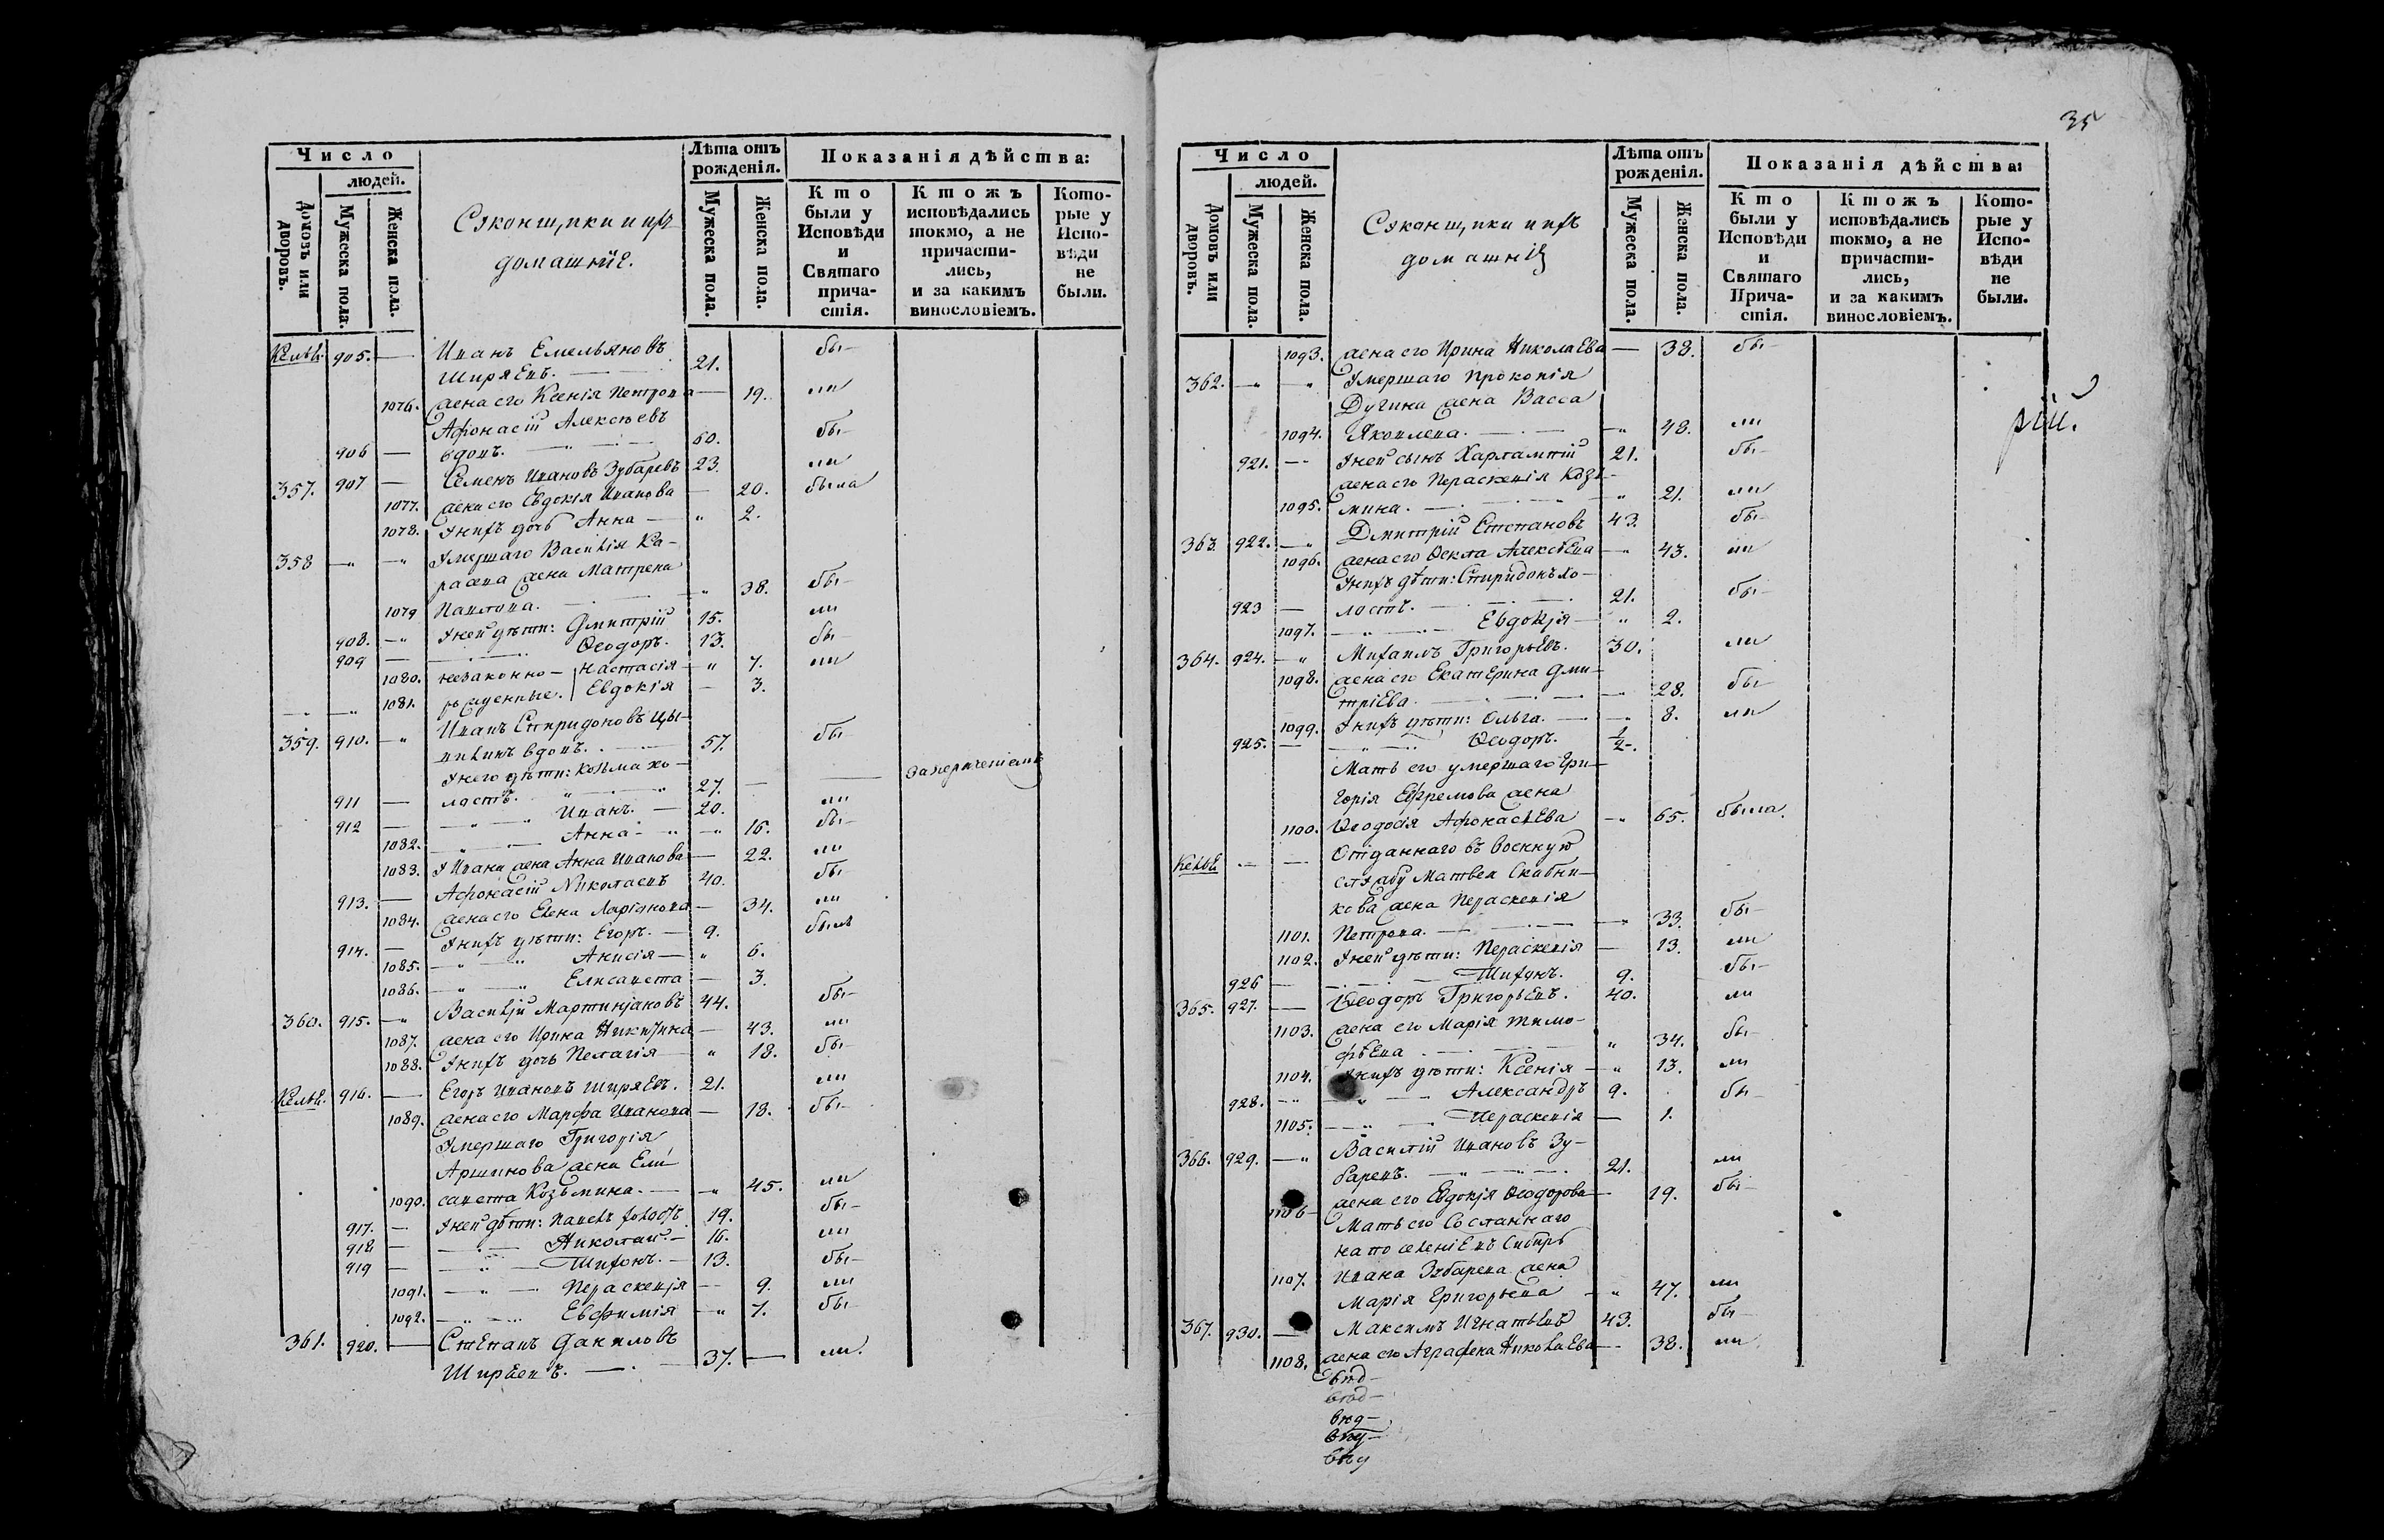 35
Число
людей.
Домовъ или дворовъ.
Мужеска пола.
Женска пола.
домашніе.
Лѣта отъ рожденія.
Мужеска пола.
Женска пола.
Показанія дѣйства:
Кто были у Исповѣди и Святаго причастія.
Ктожъ исповѣдались токмо, а не причастились, и за какимъ винословіемъ.
Которые у Исповѣди не были.
905. — Иванъ Емельяновъ бы-
Ширяевъ. — 21.
1076. жена его Ксенія Петрова — 19. ли
Афонасій Алексѣевъ
906 — вдовъ. — 60. бы-
357. 907 — Семенъ Ивановъ Зубаревъ 23. ли
1077. жена его Евдокія Иванова — 20. была
1078. У нихъ дочь Анна — " 2.
358 —" —" Умершаго Василія Ка-
жена Матрена
1079 Павлова. — " 38. бы-
908. —" У ней дѣти: Дмитрій 15. ли
909 — Ѳеодоръ. 13. бы-
1080. незаконно- Настасія — " 7. ли
1081. рожденные. Евдокія — 3.
359. 910. —" Иванъ Спиридоновъ
вдовъ. — 57. бы
У него дѣти: Козьма хо-
911 — лостъ. 27. —
912 — Иванъ. — 20. ли
1082. Анна — 16. бы-
1083. У Ивана жена Анна Иванова — 22. ли
913. — Афонасій Николаевъ 40. бы
1084. жена его Елена Ларіонова — 34. ли
914. — У нихъ дѣти: Егоръ. — 9. были
1085. Анисія — " 6.
1086. Елисавета — 3.
360. 915. —" Василій Мартиніановъ 44. бы-
1087. жена его Ирина Никитина — 43. ли
1088. У нихъ дочь Пелагія — " 18. бы-
916. — Егоръ Ивановъ Ширяевъ. 21. ли
1089. жена его Марфа Иванова — 18. бы-
Умершаго Григорія
Аршинова жена Ели-
1090. савета Козьмина. — " 45. ли
917. — У ней дѣти: Павелъ холостъ 19. бы-
918 — Николай. — 16. ли
919 — Тихонъ. — 13. бы-
1091. Параскевія — 9. ли
1092. Евфимія — " 7. бы-
361. 920. — Степанъ Даниловъ
Ширяевъ. — 37. — ли.
Число
людей.
Домовъ или дворовъ.
Мужеска пола.
Женска пола.
домашніе
Лѣта отъ рожденія.
Мужеска пола.
Женска пола.
Показанія дѣйства:
Кто были у Исповѣди и Святаго Причастія.
Ктожъ исповѣдались токмо, а не причастились, и за какимъ винословіемъ.
Которые у Исповѣди не были.
1093. жена его Ирина Николаева — 38. бы-
362. —" " Умершаго Прокопія
Дугина жена Васса
1094. Яковлева. — —" 48. ли
рій.
921. — У ней сынъ Харлампій 21. бы-
жена его Параскевія Козь-
1095. мина. — " 21. ли
363. 922. —" Дмитрій Степановъ 43. бы-
1096. жена его Ѳекла Алексѣева —" 43. ли
У нихъ дѣти: Спиридонъ хо-
923 — лостъ. — 21. бы-
1097. Евдокія — " 2.
364. 924. —" Михаилъ Григорьевъ. 30. ли
1098. жена его Екатерина Дми-
тріева. — 28. бы-
1099. У нихъ дѣти: Ольга. — 8. ли
925. — Ѳеодоръ. 1/2.
Мать его умершаго Гри-
горія Ефремова жена
1100. Ѳеодосія Афонасьева —" 65. была.
— — Отданнаго въ военную
службу Матвея Скабни-
кова жена Параскевія
1101. Петрова. — " 33. бы-
1102. У ней дѣти: Параскевія — 13. ли
926 — Тихонъ. 9. бы-
365. 927. — Ѳеодоръ Григорьевъ. 40. ли
1103. жена его Марія Тимо-
фѣева — " 34. бы-
1104. У нихъ дѣти: Ксенія — " 13. ли
928. Александръ 9. бы-
1105. Параскевія — 1.
366. 929. —" Василій Ивановъ Зу-
баревъ. — 21. ли
1106 жена его Евдокія Ѳеодорова — 19. бы-
Мать его Сосланнаго
на поселеніе въ Сибирь
1107. Ивана Зубарева жена
Марія Григорьева — " 47. ли
367. 930. — Максимъ Игнатьевъ 43. бы
1108. жена его Аграфена Николаева — 38. ли